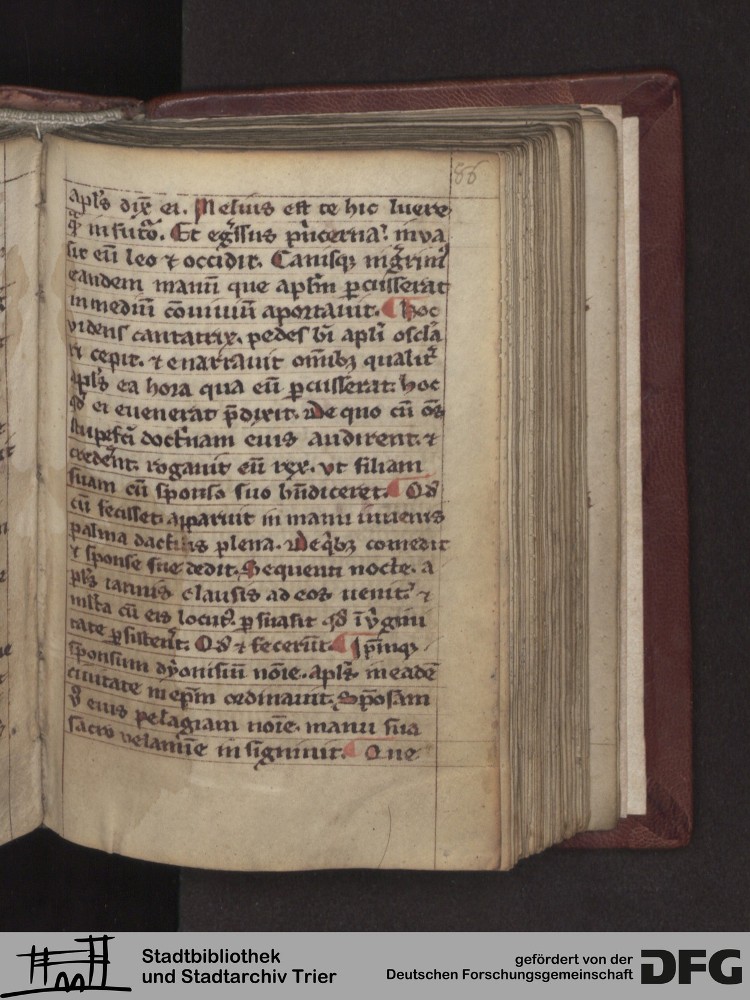 86
apl's dix̄ ei. Melius est te hic luere
q̄ in futo᷑. Et eg̃ssus pincerna: inua
sit eū leo ⁊ occidit. Canisq; nigrim᷑
eandem manū que aplm̄ ꝑcusserat
in mediū cōuiuiū aportauit. ¶ Hoc
videns cantatrix. pedes bī apl̄i oscla
ri cepit. ⁊ enarrauit omib; qualit᷑
apl's ea hora qua eū ꝑcusserat: hoc
qd̄ ei euenerat p̄dixit. De quo cū om̄s
stupefc̄i doct᷑nam eius audirent. ⁊
crederēt. rogauit eū rex. vt filiam
suam cū sponso suo bn̄diceret. ¶ Qd̄
cū fecisset. apparuit in manu iuuenis
palma dactilis plena. De q̇b; comedit
⁊ sponse sue dedit. Sequenti nocte. a
pl's ianuis clausis ad eos uenit. ⁊
ml̄ta cū eis locut᷒. ꝑsuasit qd̄ ī v̇gini
tate ꝑsisterēt. Qd̄ ⁊ fecerūt. ¶ Ip̄mq;
sponsum dyonisiū noīe. apl's in eadē
ciuitate in ep̄m ordinauit. Spōsam
ꝟ eius pelagiam noīe. manu sua
sacro velamīe insigniuit. ¶ Que
Stadtbibliothek
und Stadtarchiv Trier
gefördert von der
Deutschen Forschungsgemeinschaft
DFG